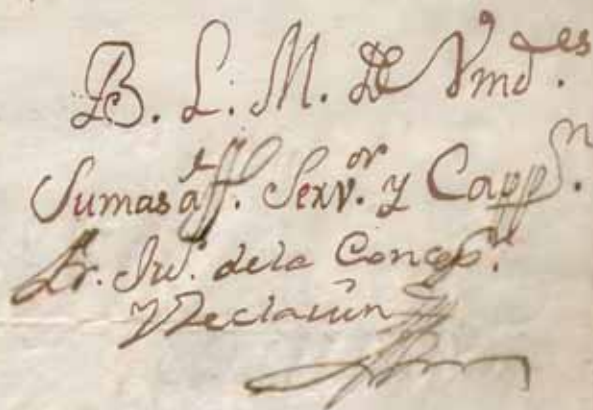 B. L. M. De Vmd.es
Su mas aff.to Serv.or y Capp.n
Fr. Ju.o de la Concep.n